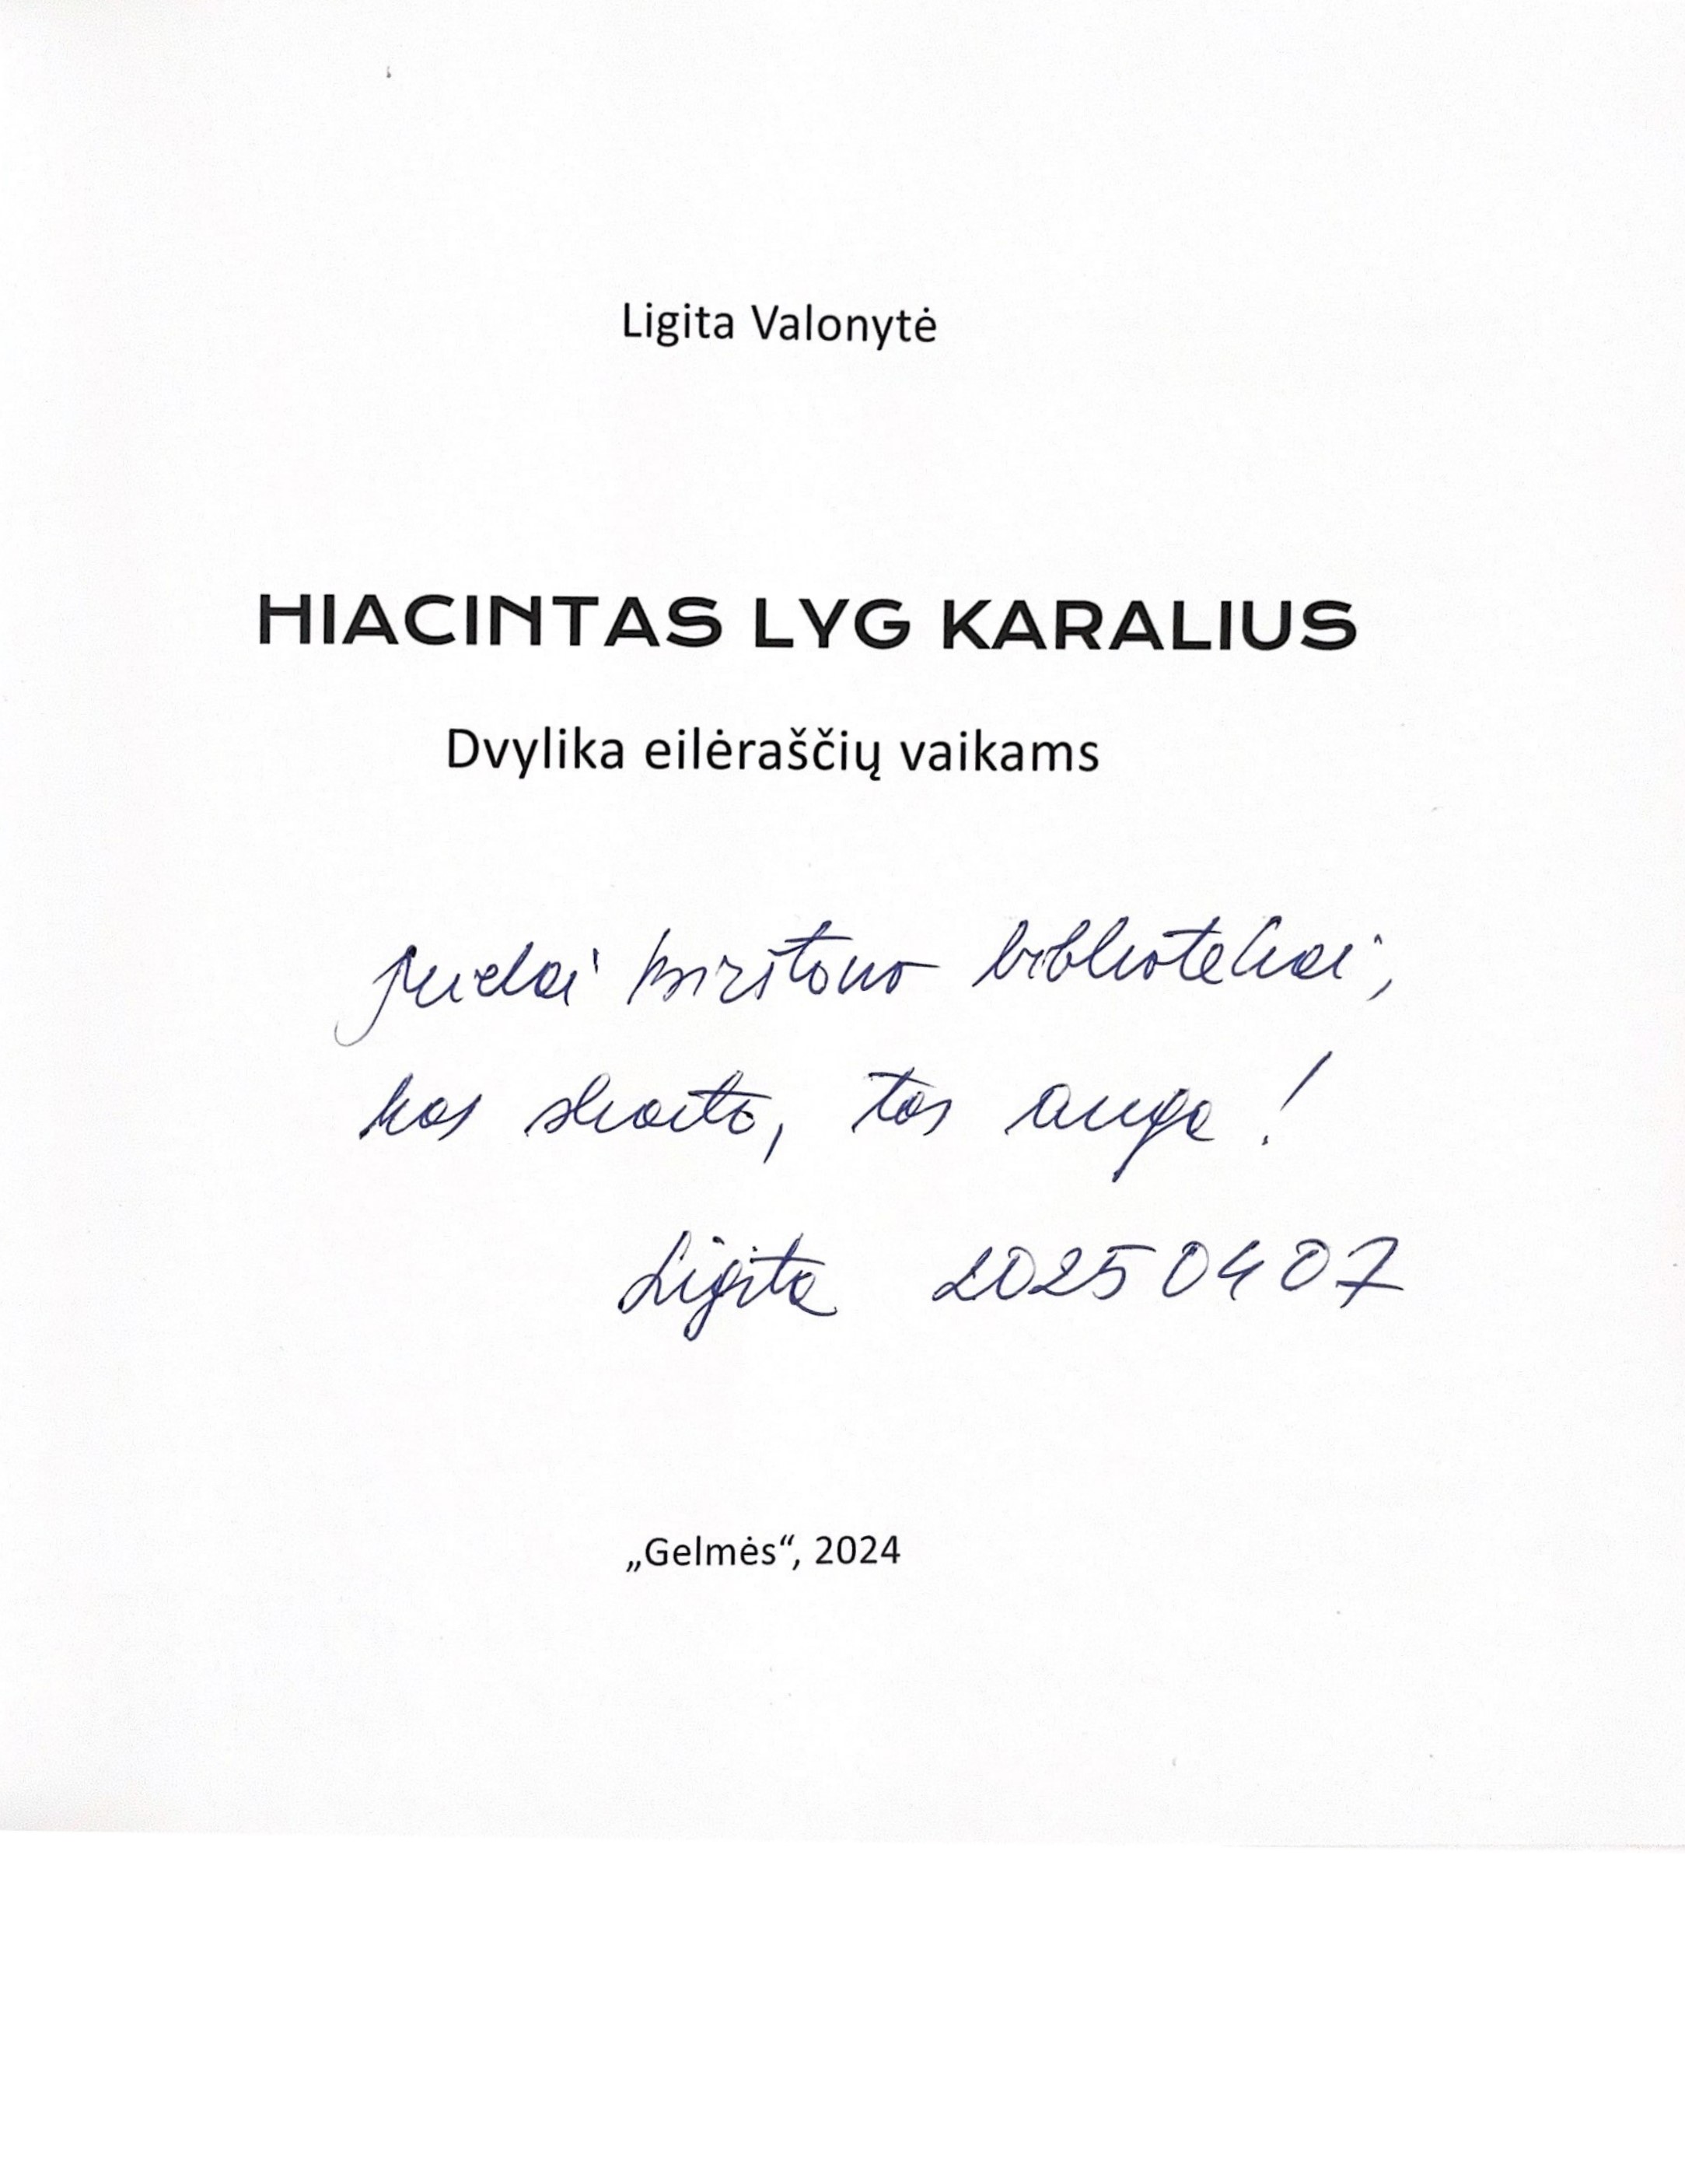 Ligita Valonytė
HIACINTAS LYG KARALIUS
Dvylika eilėraščių vaikams
bibliotekai,
kas skaito, tas auga!
Ligita 2025 04 07
„Gelmės“, 2024